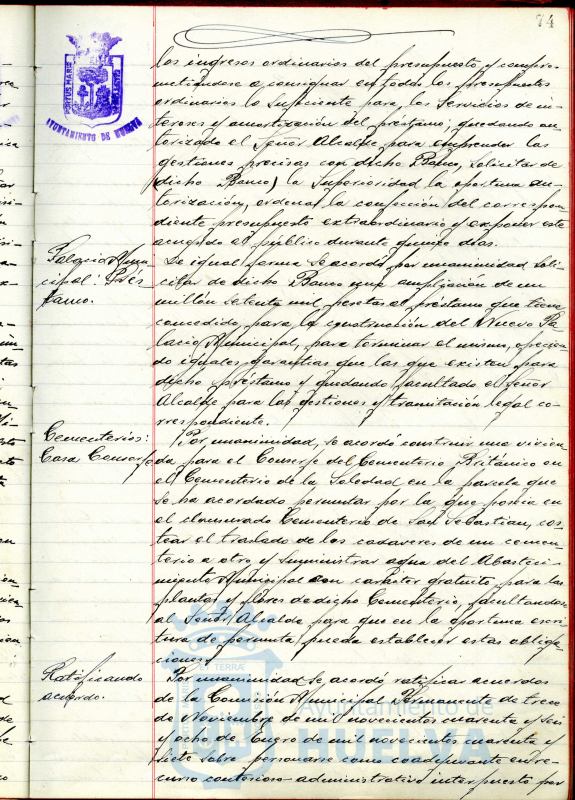 74
PORTUS MARIS
AYUNTAMIENTO DE HUELVA
los ingresos ordinarios del presupuesto y compro-
metiendose a consignar en todos los presupuestos
ordinarios lo suficiente para los servicios de in-
tereses y amortización del préstamo; quedando au-
torizado el Señor Alcalde para emprender las
gestiones precisas con dicho Banco, solicitar de
(dicho Banco) la Superioridad la oportuna au-
torización, ordenar la confección del correspon-
diente presupuesto extraordinario y exponer este
acuerdo al público durante quince días.
Palacio Muni-
cipal: Prés-
tamo.
De igual forma se acordó por unanimidad soli-
citar de dicho Banco una ampliación de un
millón setenta mil pesetas al préstamo que tiene
concedido, para la construcción del Nuevo Pa-
lacio Municipal, para terminar el mismo, ofrecien-
do iguales garantias que las que existen para
dicho préstamo y quedando facultado el Señor
Alcalde para las gestiones y tramitación legal co-
rrespondiente.
Cementerios:
Casa Conserje
Por unanimidad, se acordó construir una vivien-
da para el Conserje del Cementerio Británico en
el Cementerio de la Soledad en la parcela que
se ha acordado permutar por la que poseia en
el clausurado Cementerio de San Sebastian, cos-
tear el traslado de los cadaveres de un cemen-
terio a otro y suministrar agua del Abasteci-
miento Municipal con carácter gratuito, para las
plantas y flores de dicho Cementerio, facultandose
al Señor Alcalde para que en la oportuna escri-
tura de permuta, pueda establecer estas obliga-
ciones.
Ratificando
acuerdo.
Por unanimidad se acordó ratificar acuerdos
de la Comisión Municipal Permanente de trece
de Noviembre de mil novecientos cuarenta y seis
y ocho de Enero de mil novecientos cuarenta y
siete sobre personarse como coadyuvante en re-
curso contencioso-administrativo interpuesto por
TERRAE
Ayuntamiento de
HUELVA